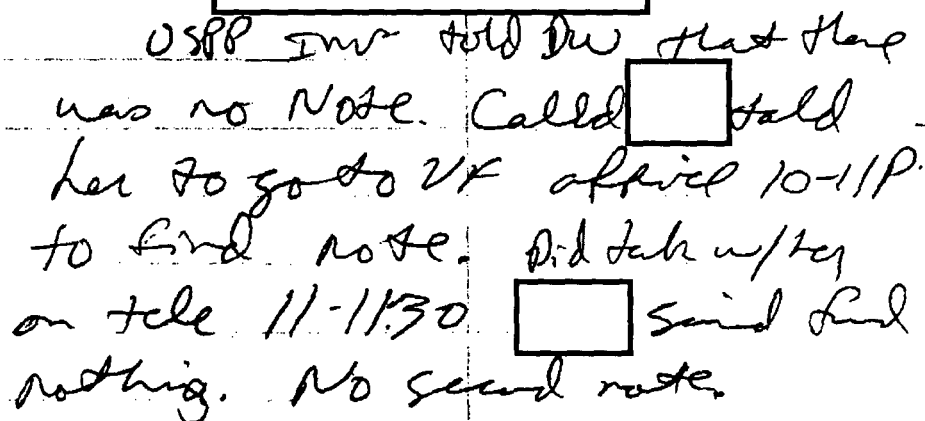 USPP Inv told DW that there
was no Note. Called told
her to go to VF office 10-11P.
to find note. Did talk w/her
on tele 11-11:30 said find
nothing. No second note.